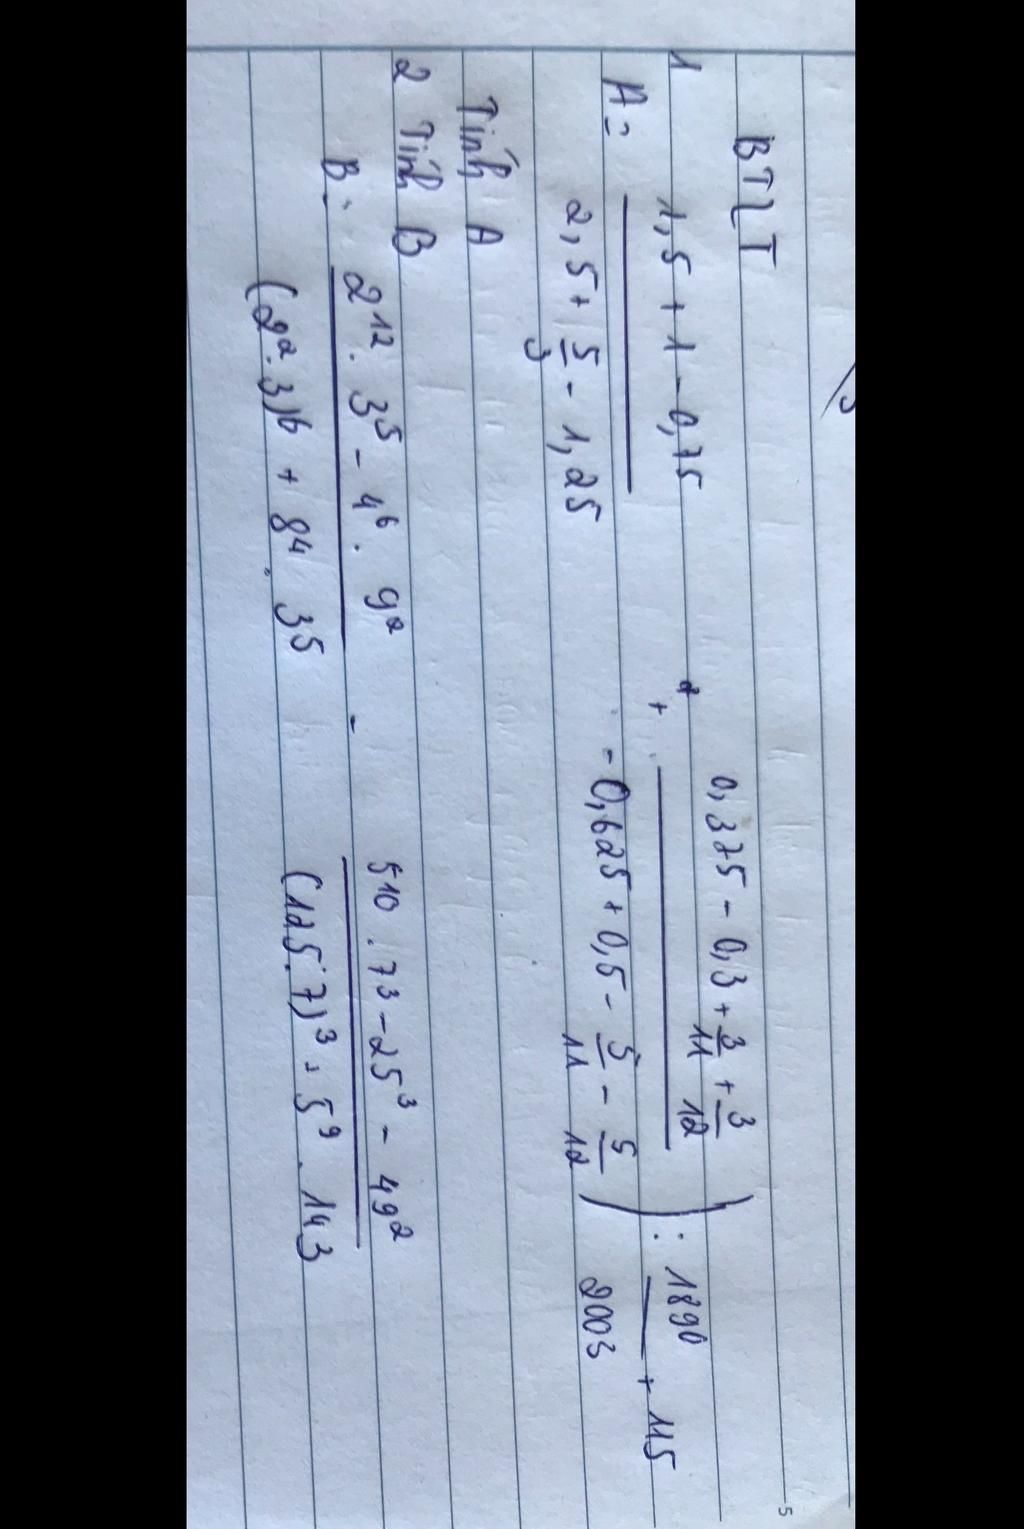 5
BTVT
1
A = \frac{1,5 + 1 - 0,75}{2,5 + \frac{5}{3} - 1,25} + \frac{0,375 - 0,3 + \frac{3}{11} + \frac{3}{12}}{-0,625 + 0,5 - \frac{5}{11} - \frac{5}{12}} ) : \frac{1890}{2003} + 115
Tính A
2 Tính B
B = \frac{2^{12} . 3^5 - 4^6 . 9^2}{(2^2 . 3)^6 + 8^4 . 3^5} - \frac{5^{10} . 7^3 - 25^3 - 49^2}{(125 . 7)^3 + 5^9 . 14^3}